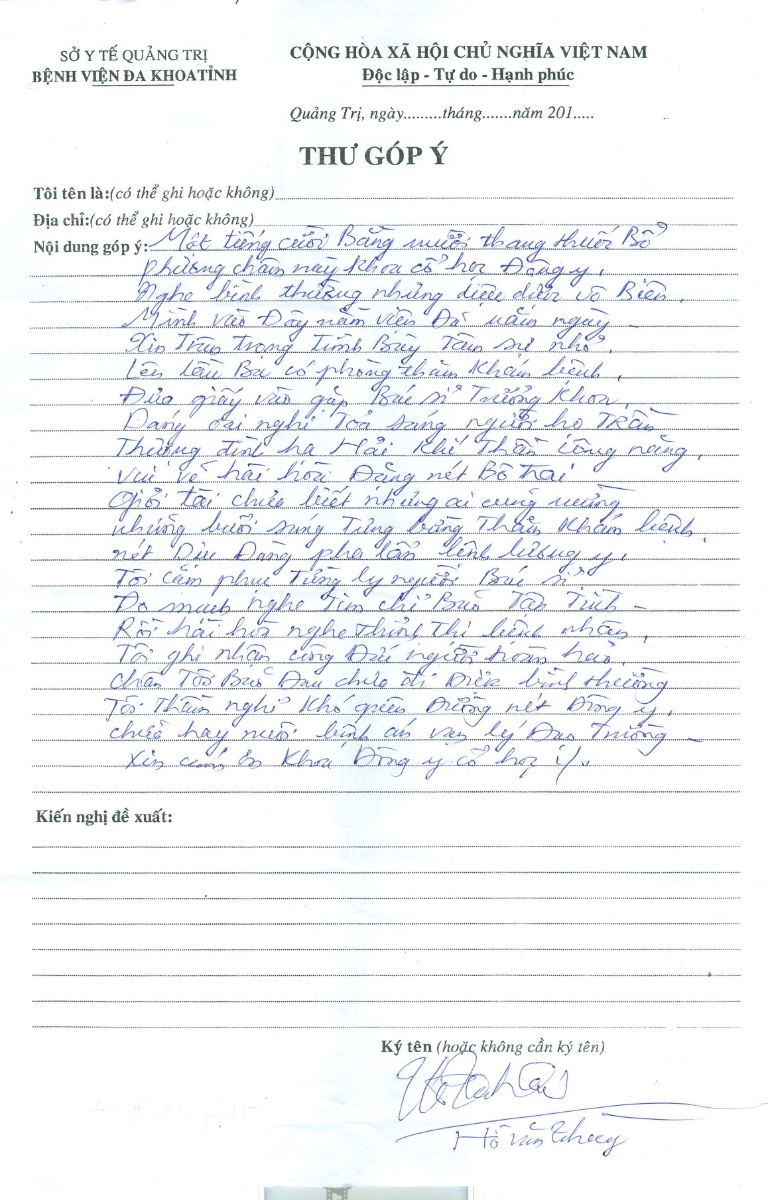 SỞ Y TẾ QUẢNG TRỊ
BỆNH VIỆN ĐA KHOA TỈNH
CỘNG HÒA XÃ HỘI CHỦ NGHĨA VIỆT NAM
Độc lập - Tự do - Hạnh phúc
Quảng Trị, ngày.........tháng.......năm 201.....
THƯ GÓP Ý
Tôi tên là:(có thể ghi hoặc không)
Địa chỉ:(có thể ghi hoặc không)
Nội dung góp ý: Một tiếng cười Bằng mười thang thuốc Bổ
phương châm này khoa cổ học Đông y.
Nghe bình thường nhưng diệu diệu vô Biên.
Mình vào Đây nằm viện Đã năm ngày
Xin Trân trọng Trình Bày Tâm sự nhỏ.
Lên lầu Ba có phòng thăm Khám bệnh,
Đưa giấy vào gặp Bác sĩ Trưởng Khoa,
Dáng oai nghi Toả sáng người họ Trần
Thượng đỉnh hạ Hải Khí Thần công năng,
vui vẻ hài hòa Dáng nét Bô trai
Giỏi tài chưa biết nhưng ai cũng
những buổi sáng Tưng bừng Thăm Khám bệnh,
nét Dịu Dàng pha lẫn lương y.
Tôi cảm phục người Bác sĩ
Đo mạch nghe Tim chỉ Bảo Tận Tình -
Rồi hài hòa nghe bệnh nhân,
Tôi ghi nhận công Đức người hoàn hảo.
chân Tôi Đau chưa đi bình thường
Tôi Thầm nghĩ Khó nét Đông y.
bình an vạn lý Đạo Trường -
Xin cảm ơn Khoa Đông y cổ học ./.
Kiến nghị đề xuất:
Ký tên (hoặc không cần ký tên)
Hồ văn